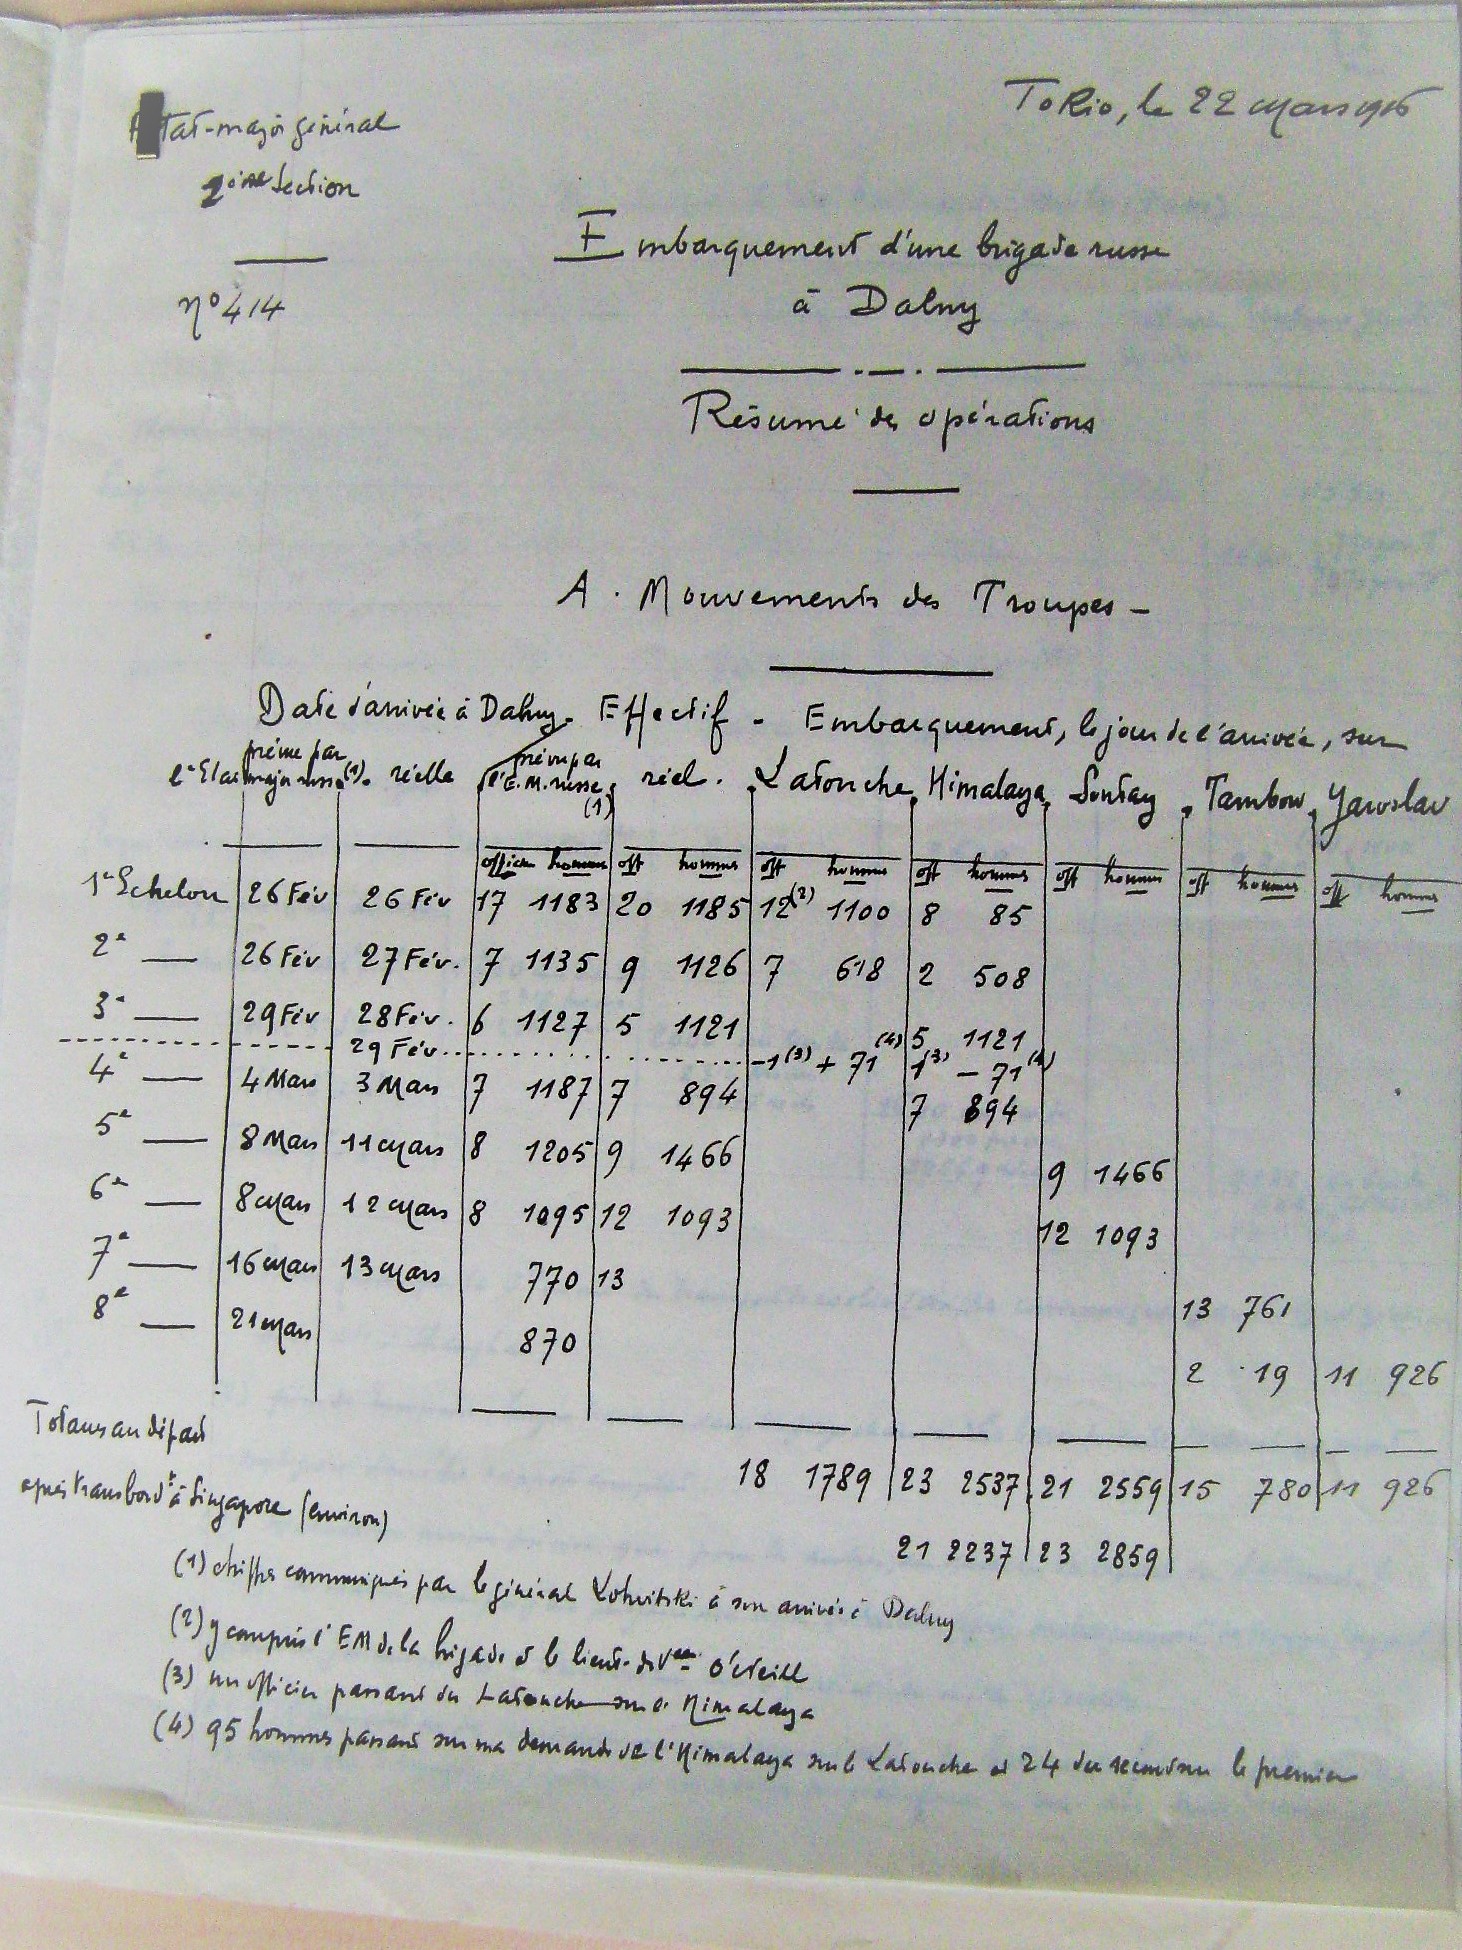 Etat-major général
Tokio, le 22 Mars 1916
2ème Section
n° 414
Embarquement d'une brigade russe
à Dalny
Résumé des opérations
A. Mouvements des Troupes -
Date d'arrivée à Dalny - Effectif - Embarquement, le jour de l'arrivée, sur
prévue par l'Etat major russe (1) - réelle prévu par l'E.M. russe (1) réel. Latouche Himalaya Sontay Tambow Yaroslav
officiers hommes off hommes off hommes off hommes off hommes off hommes off hommes
1er Echelon 26 Fév 26 Fév 17 1183 20 1185 12(2) 1100 8 85
2e — 26 Fév 27 Fév. 7 1135 9 1126 7 618 2 508
3e — 29 Fév 28 Fév. 6 1127 5 1121 5 1121
29 Fév. -1(3) + 71(4) 1(3) - 71(4)
4e — 4 Mars 3 Mars 7 1187 7 894 7 894
5e — 8 Mars 11 Mars 8 1205 9 1466 9 1466
6e — 8 Mars 12 Mars 8 1095 12 1093 12 1093
7e — 16 Mars 13 Mars 770 13 13 761
8e — 21 Mars 870 2 19 11 926
Totaux au départ 18 1789 23 2537 21 2559 15 780 11 926
après transbordt à Singapore (environ) 21 2237 23 2859
(1) chiffres communiqués par le général Lohvitski à son arrivée à Dalny
(2) y compris l'EM de la brigade et le lieutt de Veau O'Neill
(3) un officier passant du Latouche sur l'Himalaya
(4) 95 hommes passant sur ma demande de l'Himalaya sur le Latouche et 24 du second sur le premier